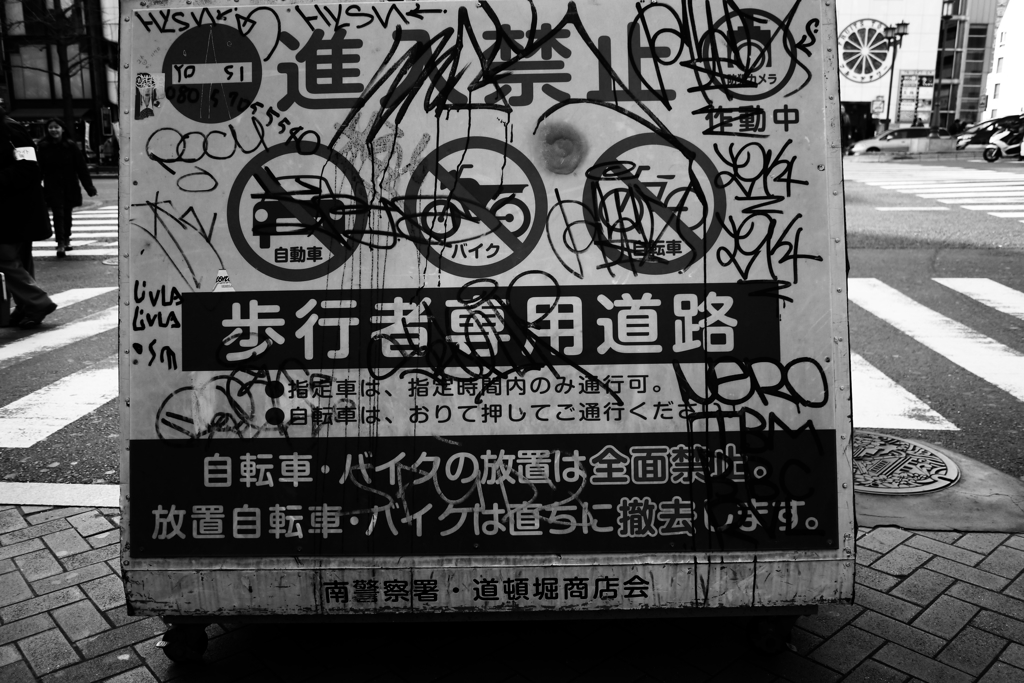 進入禁止
防犯カメラ
作動中
自動車
バイク
自転車
歩行者専用道路
●指定車は、指定時間内のみ通行可。
●自転車は、おりて押してご通行くださ
自転車・バイクの放置は全面禁止。
放置自転車・バイクは直ちに撤去します。
南警察署・道頓堀商店会
LivLA
LivLA